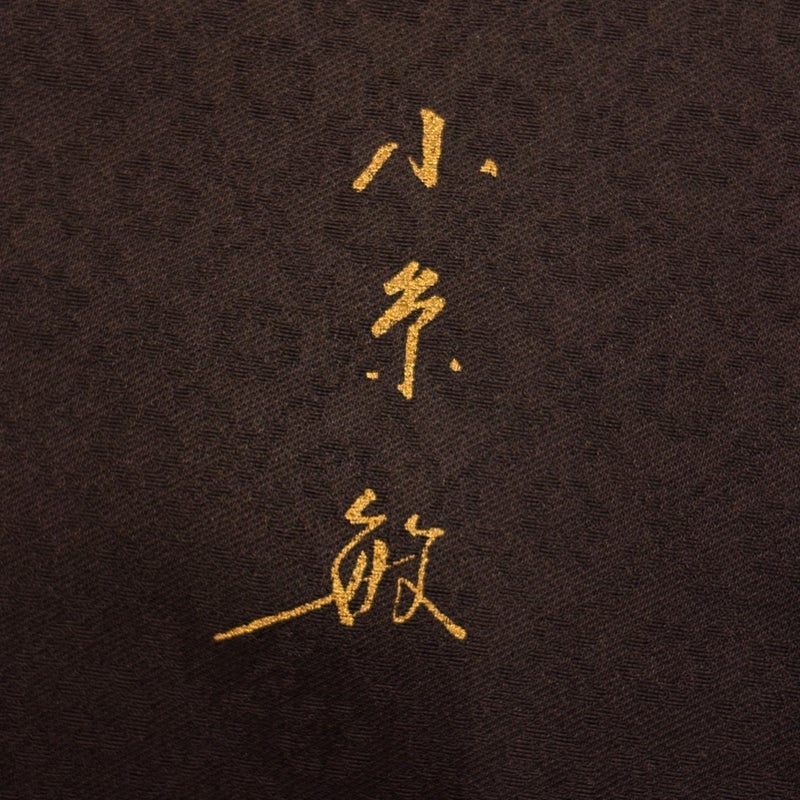 小糸敏